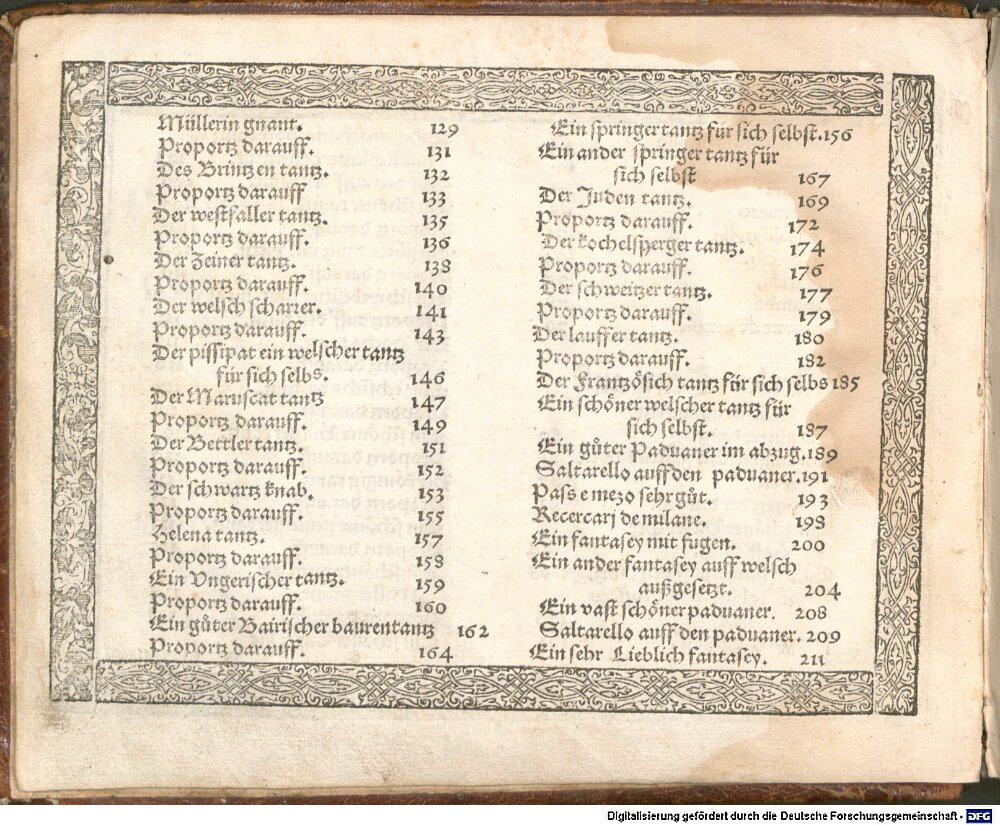 Müllerin gnant. 129
Proportz darauff. 131
Des Brintzen tantz. 132
Proportz darauff 133
Der westfaller tantz. 135
Proportz darauff. 136
Der Zeiner tantz. 138
Proportz darauff. 140
Der welsch scharrer. 141
Proportz darauff. 143
Der pissipat ein welscher tantz
für sich selbs. 146
Der Maruscat tantz 147
Proportz darauff. 149
Der Bettler tantz. 151
Proportz darauff. 152
Der schwartz knab. 153
Proportz darauff. 155
Helena tantz. 157
Proportz darauff. 158
Ein Vngerischer tantz. 159
Proportz darauff. 160
Ein gůter Bairischer baurentantz 162
Proportz darauff. 164
Ein springer tantz für sich selbst. 156
Ein ander springer tantz für
sich selbst 167
Der Juden tantz. 169
Proportz darauff. 172
Der kochelsperger tantz. 174
Proportz darauff. 176
Der schweitzer tantz. 177
Proportz darauff. 179
Der lauffer tantz. 180
Proportz darauff. 182
Der Frantzösich tantz für sich selbs 185
Ein schöner welscher tantz für
sich selbst. 187
Ein gůter Paduaner im abzug. 189
Saltarello auff den paduaner. 191
Pass e mezo sehr gůt. 193
Recercarj de milane. 198
Ein fantasey mit fugen. 200
Ein ander fantasey auff welsch
außgesetzt. 204
Ein vast schöner paduaner. 208
Saltarello auff den paduaner. 209
Ein sehr Lieblich fantasey. 211
Digitalisierung gefördert durch die Deutsche Forschungsgemeinschaft - DFG